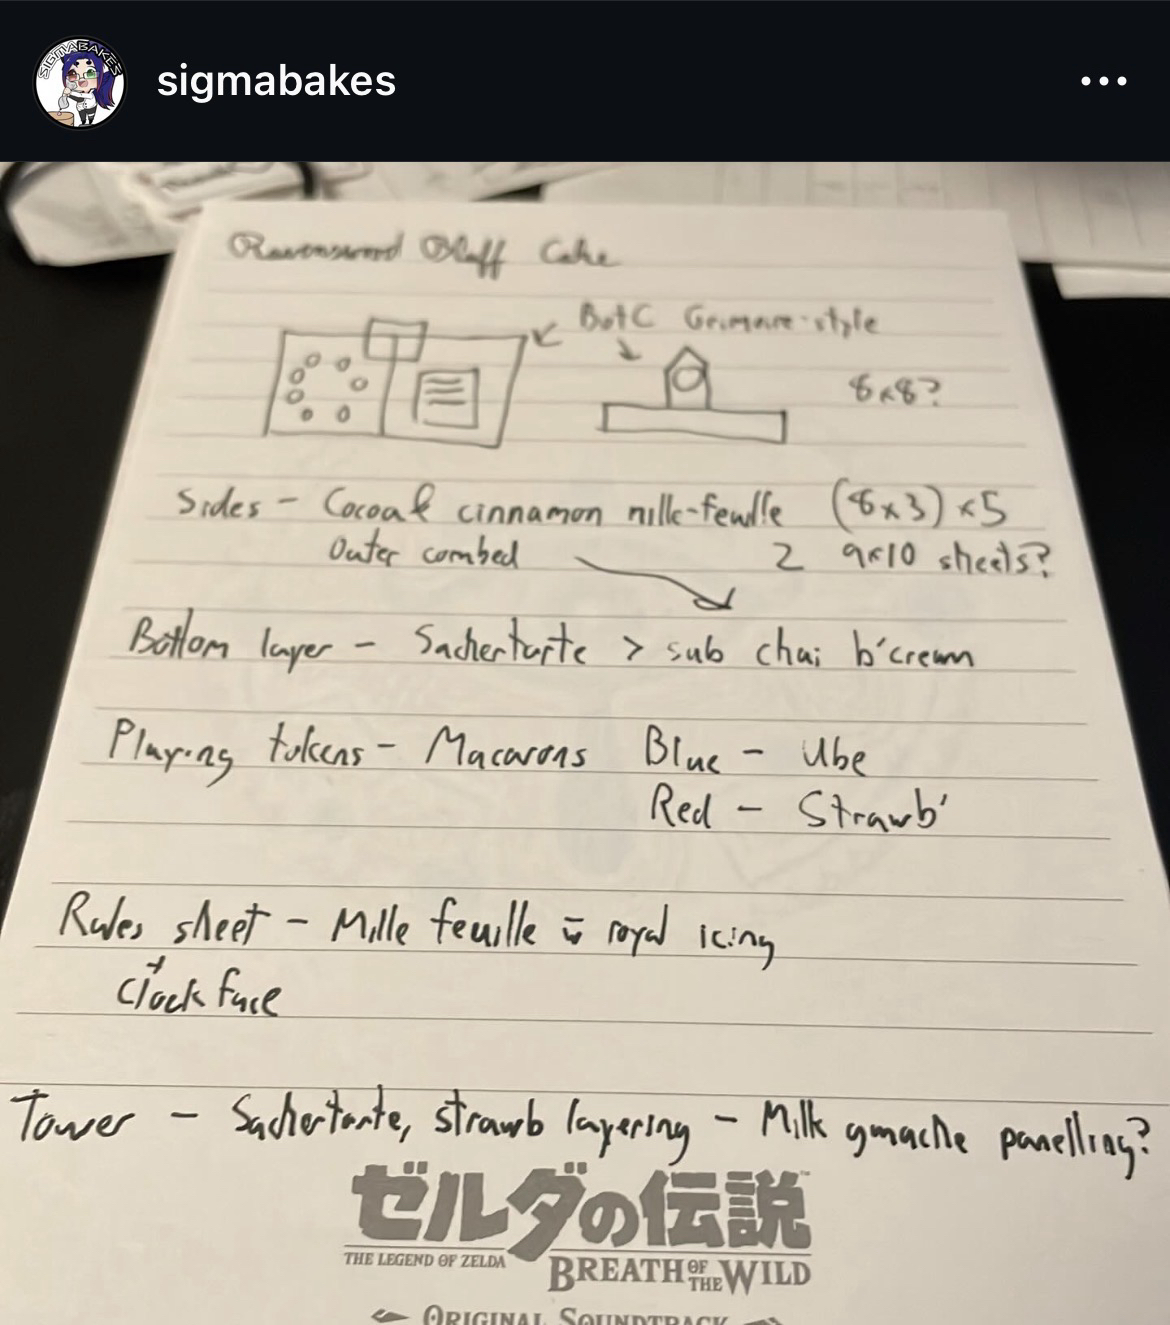 SIGMABAKES
sigmabakes
Ravenswood Bluff Cake
BotC Grimoire-style
8x8?
Sides - Cocoa & cinnamon mille-feuille (8x3) x5
Outer combed 2 9x10 sheets?
Bottom layer - Sachertorte > sub chai b'cream
Playing tokens - Macarons Blue - Ube
Red - Strawb'
Rules sheet - Mille feuille w royal icing
+
Clock face
Tower - Sachertorte, strawb layering - Milk ganache panelling?
ゼルダの伝説
THE LEGEND OF ZELDA BREATH OF THE WILD
ORIGINAL SOUNDTRACK